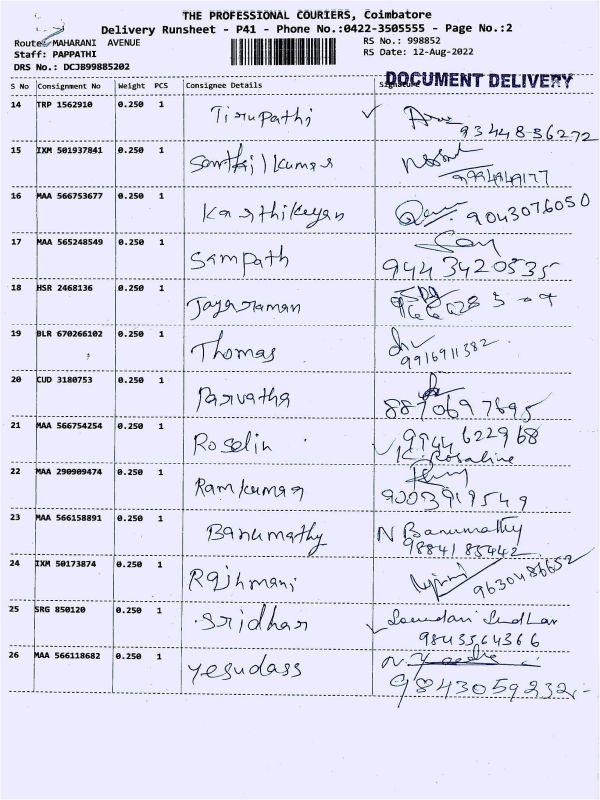 THE PROFESSIONAL COURIERS, Coimbatore
Delivery Runsheet - P41 - Phone No.:0422-3505555 - Page No.:2
Route: MAHARANI AVENUE RS No.: 998852
Staff: PAPPATHI RS Date: 12-Aug-2022
DRS No.: DCJB99885202
DOCUMENT DELIVERY
S No Consignment No Weight PCS Consignee Details Signature
14 TRP 1562910 0.250 1 Tirupathi
93448-36272
15 IXM 501937841 0.250 1 Senthil kumar
16 MAA 566753677 0.250 1 Karthikeyan 9043076050
17 MAA 565248549 0.250 1 Sampath
9443420535
18 HSR 2468136 0.250 1 Jayaraman
19 BLR 670266102 0.250 1 Thomas
9916911382.
20 CUD 3180753 0.250 1 Parvatha
8870697695
21 MAA 566754254 0.250 1 Roselin 9944622968
K. Rosaline
22 MAA 290909474 0.250 1 Ramkumar
9003919549
23 MAA 566158891 0.250 1 Banumathy N Banumathy
9884185442
24 IXM 50173874 0.250 1 Rajhmani 9630486652
25 SRG 850120 0.250 1 Sridhar Soundari Sridhar
9843564366
26 MAA 566118682 0.250 1 yesudass
9843059232